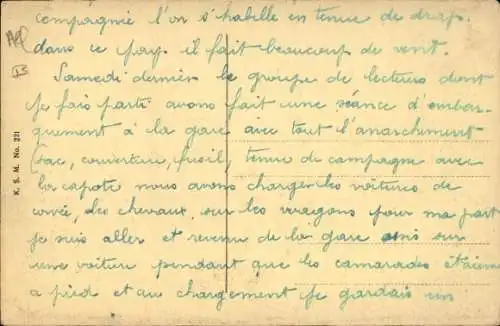 compagnie l'on s'habille en tenue de drap.
dans ce pays il fait beaucoup de vent.
Samedi dernier le groupe de lecteurs dont
je fais parti avons fait une séance d'embar-
quement à la gare avec tout l'anarchiment
(sac, couverture, fusil, tenue de campagne avec
la capote nous avons charger les voitures de
corvée, les chevaux, sur les wagons pour ma part
je suis aller et revenu de la gare assis sur
une voiture pendant que les camarades étaiens
a pied et au chargement je gardais un
K. S. M. No. 221